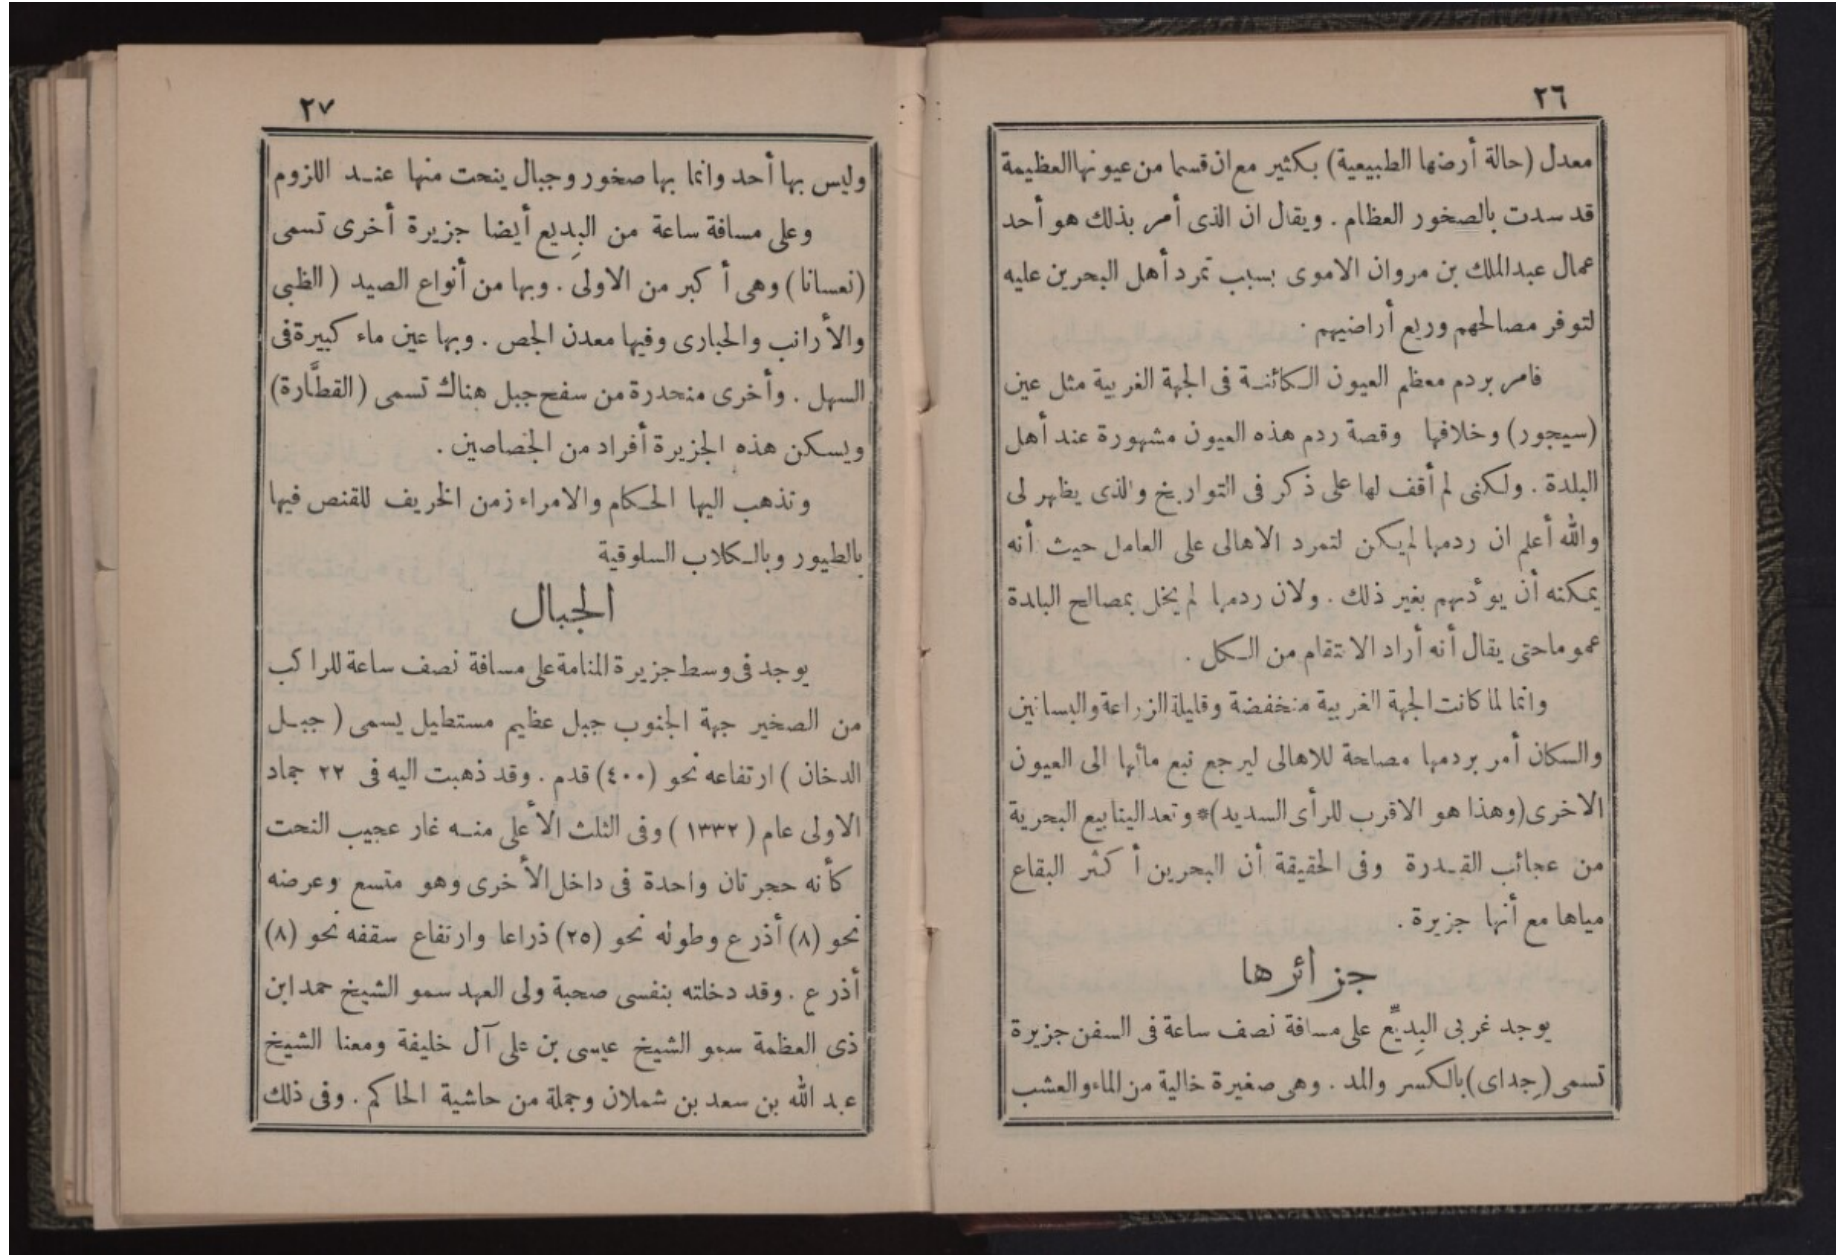 ٢٦
معدل (حالة أرضها الطبيعية) بكثير مع ان قسما من عيونها العظيمة
قد سدت بالصخور العظام . ويقال ان الذى أمر بذلك هو أحد
عمال عبدالملك بن مروان الاموى بسبب تمرد أهل البحرين عليه
لتوفر مصالحهم وريع أراضيهم .
فامر بردم معظم العيون الكائنة فى الجهة الغربية مثل عين
(سيجور) وخلافها وقصة ردم هذه العيون مشهورة عند أهل
البلدة . ولكنى لم أقف لها على ذكر فى التواريخ والذى يظهر لى
والله أعلم ان ردمها لم يكن لتمرد الاهالى على العامل حيث أنه
يمكنه أن يؤدبهم بغير ذلك . ولان ردمها لم يخل بمصالح البلدة
عموما حتى يقال أنه أراد الانتقام من الكل .
وانما لما كانت الجهة الغربية منخفضة وقليلة الزراعة والبساتين
والسكان أمر بردمها مصلحة للاهالى ليرجع نبع مائها الى العيون
الاخرى (وهذا هو الاقرب للرأى السديد)* وتعد الينابيع البحرية
من عجائب القدرة وفى الحقيقة أن البحرين أكثر البقاع
مياها مع أنها جزيرة .
جزائرها
يوجد غربى البِديِّع على مسافة نصف ساعة فى السفن جزيرة
تسمى (جِداى) بالكسر والمد . وهى صغيرة خالية من الماء والعشب
٢٧
وليس بها أحد وانما بها صخور وجبال ينحت منها عند اللزوم
وعلى مسافة ساعة من البِديع أيضا جزيرة أخرى تسمى
(نعسانا) وهى أكبر من الاولى . وبها من أنواع الصيد (الظبى
والأرانب والحبارى وفيها معدن الجص . وبها عين ماء كبيرة فى
السهل . وأخرى منحدرة من سفح جبل هناك تسمى (القطَّارة)
ويسكن هذه الجزيرة أفراد من الجصاصين .
وتذهب اليها الحكام والامراء زمن الخريف للقنص فيها
بالطيور وبالكلاب السلوقية
الجبال
يوجد فى وسط جزيرة المنامة على مسافة نصف ساعة للراكب
من الصخير جهة الجنوب جبل عظيم مستطيل يسمى (جبل
الدخان) ارتفاعه نحو (٤٠٠) قدم . وقد ذهبت اليه فى ٢٢ جماد
الاولى عام (١٣٣٢) وفى الثلث الأعلى منه غار عجيب النحت
كأنه حجرتان واحدة فى داخل الأخرى وهو متسع وعرضه
نحو (٨) أذرع وطوله نحو (٢٥) ذراعا وارتفاع سقفه نحو (٨)
أذرع . وقد دخلته بنفسى صحبة ولى العهد سمو الشيخ حمد ابن
ذى العظمة سمو الشيخ عيسى بن على آل خليفة ومعنا الشيخ
عبد الله بن سعد بن شملان وجملة من حاشية الحاكم . وفى ذلك